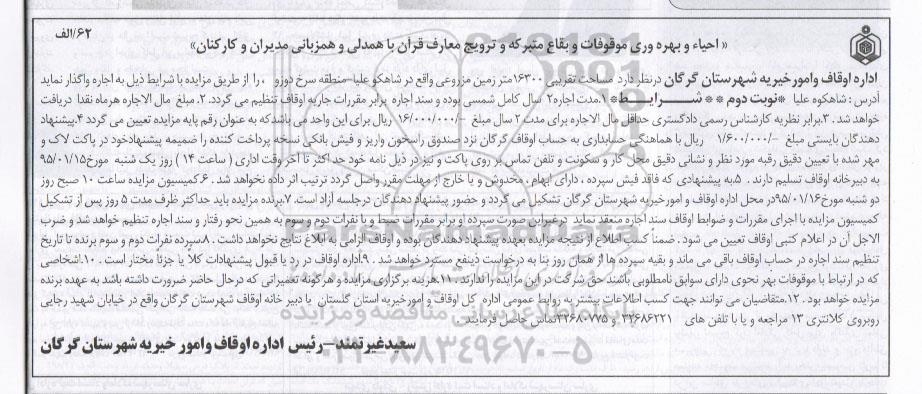 ۶۲/الف
« احیاء و بهره وری موقوفات و بقاع متبرکه و ترویج معارف قرآن با همدلی و همزبانی مدیران و کارکنان»
اداره اوقاف وامور خیریه شهرستان گرگان درنظر دارد مساحت تقریبی ۱۶۳۰۰متر زمین مزروعی واقع در شاهکو علیا –منطقه سرخ دوزو ،را از طریق مزایده با شرایط ذیل به اجاره واگذار نماید
آدرس : شاهکوه علیا *نوبت دوم **شـــرایـــط*۱.مدت اجاره۲ سال کامل شمسی بوده و سند اجاره برابر مقررات جاریه اوقاف تنظیم می گردد. ۲. مبلغ مال الاجاره هرماه نقدا دریافت
خواهد شد .۳.برابر نظریه کارشناس رسمی دادگستری حداقل مال الاجاره برای مدت ۲ سال مبلغ –/۱۶/۰۰۰/۰۰۰ ریال برای این واحد می باشدکه به عنوان رقم پایه مزایده تعیین می گردد ۴.پیشنهاد
دهندگان بایستی مبلغ –/۱/۶۰۰/۰۰۰ ریال با هماهنگی حسابداری به حساب اوقاف گرگان نزد صندوق راسخون واریز و فیش بانکی نسخه پرداخت کننده را ضمیمه پیشنهادخود در پاکت لاک و
مهر شده با تعیین دقیق رقبه مورد نظر و نشانی دقیق محل کار و سکونت و تلفن تماس بر روی پاکت و نیز در ذیل نامه خود حد اکثر تا آخر وقت اداری ( ساعت ۱۴ ) روز یک شنبه مورخ۹۵/۰۱/۱۵
به دبیرخانه اوقاف تسلیم دارند . ۵.به پیشنهادی که فاقد فیش سپرده ، دارای ابهام ، مخدوش و یا خارج از مهلت مقرر واصل گردد ترتیب اثر داده نخواهد شد . ۶.کمیسیون مزایده ساعت ۱۰ صبح روز
دو شنبه مورخ۹۵/۰۱/۱۶در محل اداره اوقاف و امورخیریه شهرستان گرگان تشکیل می گردد و حضور پیشنهاد دهندگان درجلسه آزاد است. ۷.برنده مزایده باید حداکثر ظرف مدت ۵ روز پس از تشکیل
کمیسیون مزایده با اجرای مقررات و ضوابط اوقاف سند اجاره منعقد نماید درغیراین صورت سپرده او برابر مقررات ضبط و با نفرات دوم و سوم به همین نحو رفتار و سند اجاره تنظیم خواهد شد و ضرب
الاجل آن در اعلام کتبی اوقاف تعیین می شود . ضمناً کسب اطلاع از نتیجه مزایده بعهده پیشنهاد دهندگان بوده و اوقاف الزامی به ابلاغ نتایج نخواهد داشت . ۸.سپرده نفرات دوم و سوم برنده تا تاریخ
تنظیم سند اجاره در حساب اوقاف باقی می ماند و بقیه سپرده ها از همان روز بنا به درخواست ذینفع مسترد خواهد شد . ۹.اداره اوقاف در رد یا قبول پیشنهادات کلاً یا جزئاً مختار است . ۱۰.اشخاصی
که در ارتباط با موقوفات بهر نحوی دارای سوابق نامطلوبی باشند حق شرکت در این مزایده را ندارند .۱۱.هزینه برگزاری مزایده و هرگونه تعمیراتی که درحال حاضر ضرورت داشته باشد به عهده برنده
مزایده خواهد بود . ۱۲.متقاضیان می توانند جهت کسب اطلاعات بیشتر به روابط عمومی اداره کل اوقاف و امورخیریه استان گلستان یا دبیر خانه اوقاف شهرستان گرگان واقع در خیابان شهید رجایی
روبروی کلانتری ۱۳ مراجعه و یا با تلفن های ۳۲۶۸۶۲۲۱ و ۳۲۶۸۰۷۷۵تماس حاصل فرمایند.
سعیدغیرتمند–رئیس اداره اوقاف وامور خیریه شهرستان گرگان
ParsNamadData
۰۲۱-۸۸۳۴۹۶۷۰-۵